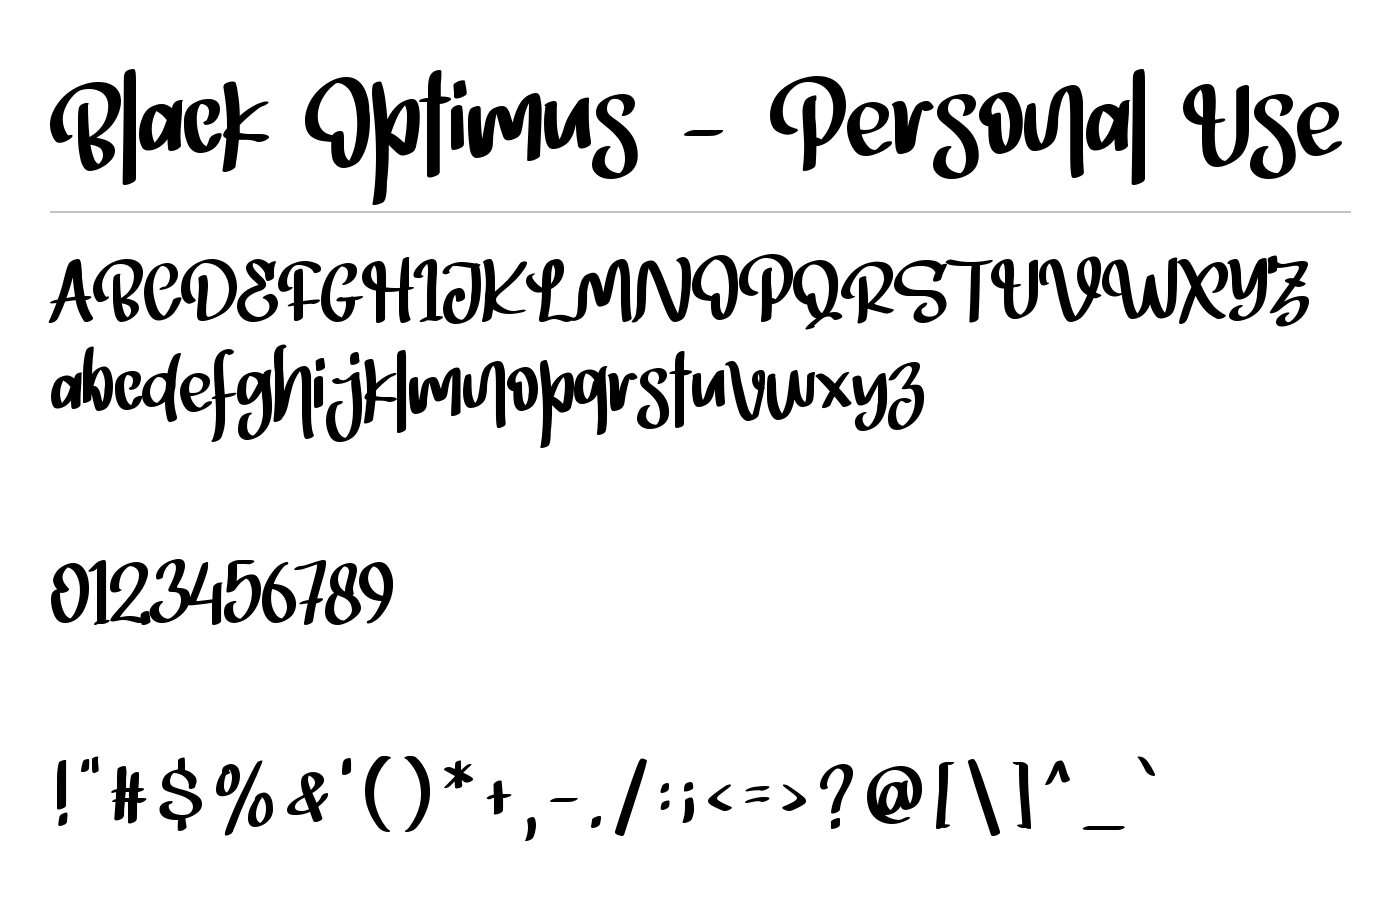 Black Optimus - Personal Use
ABCDEFGHIJKLMNOPQRSTUVWXYZ
abcdefghijklmnopqrstuvwxyz
0123456789
!"#$%&'()*+,-./:;<=>?@[\]^_`